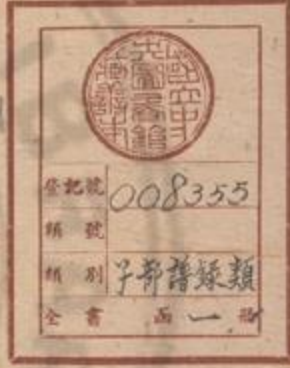 登記號 008355
類號
類別 子部譜錄類
全書 函一冊